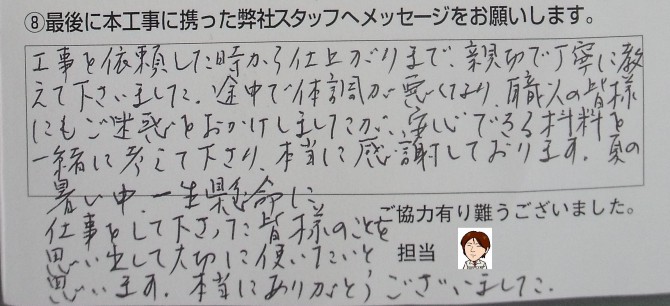 ⑧最後に本工事に携った弊社スタッフへメッセージをお願いします。
工事を依頼した時から仕上がりまで、親切で丁寧に教
えて下さいました。途中で体調が悪くなり、職人の皆様
にもご迷惑をおかけしましたが、安心できる材料を
一緒に考えて下さり、本当に感謝しております。夏の
暑い中、一生懸命に
仕事をして下さった皆様のことを
思い出して大切に使いたいと
思います。本当にありがとうございました。
ご協力有り難うございました。
担当